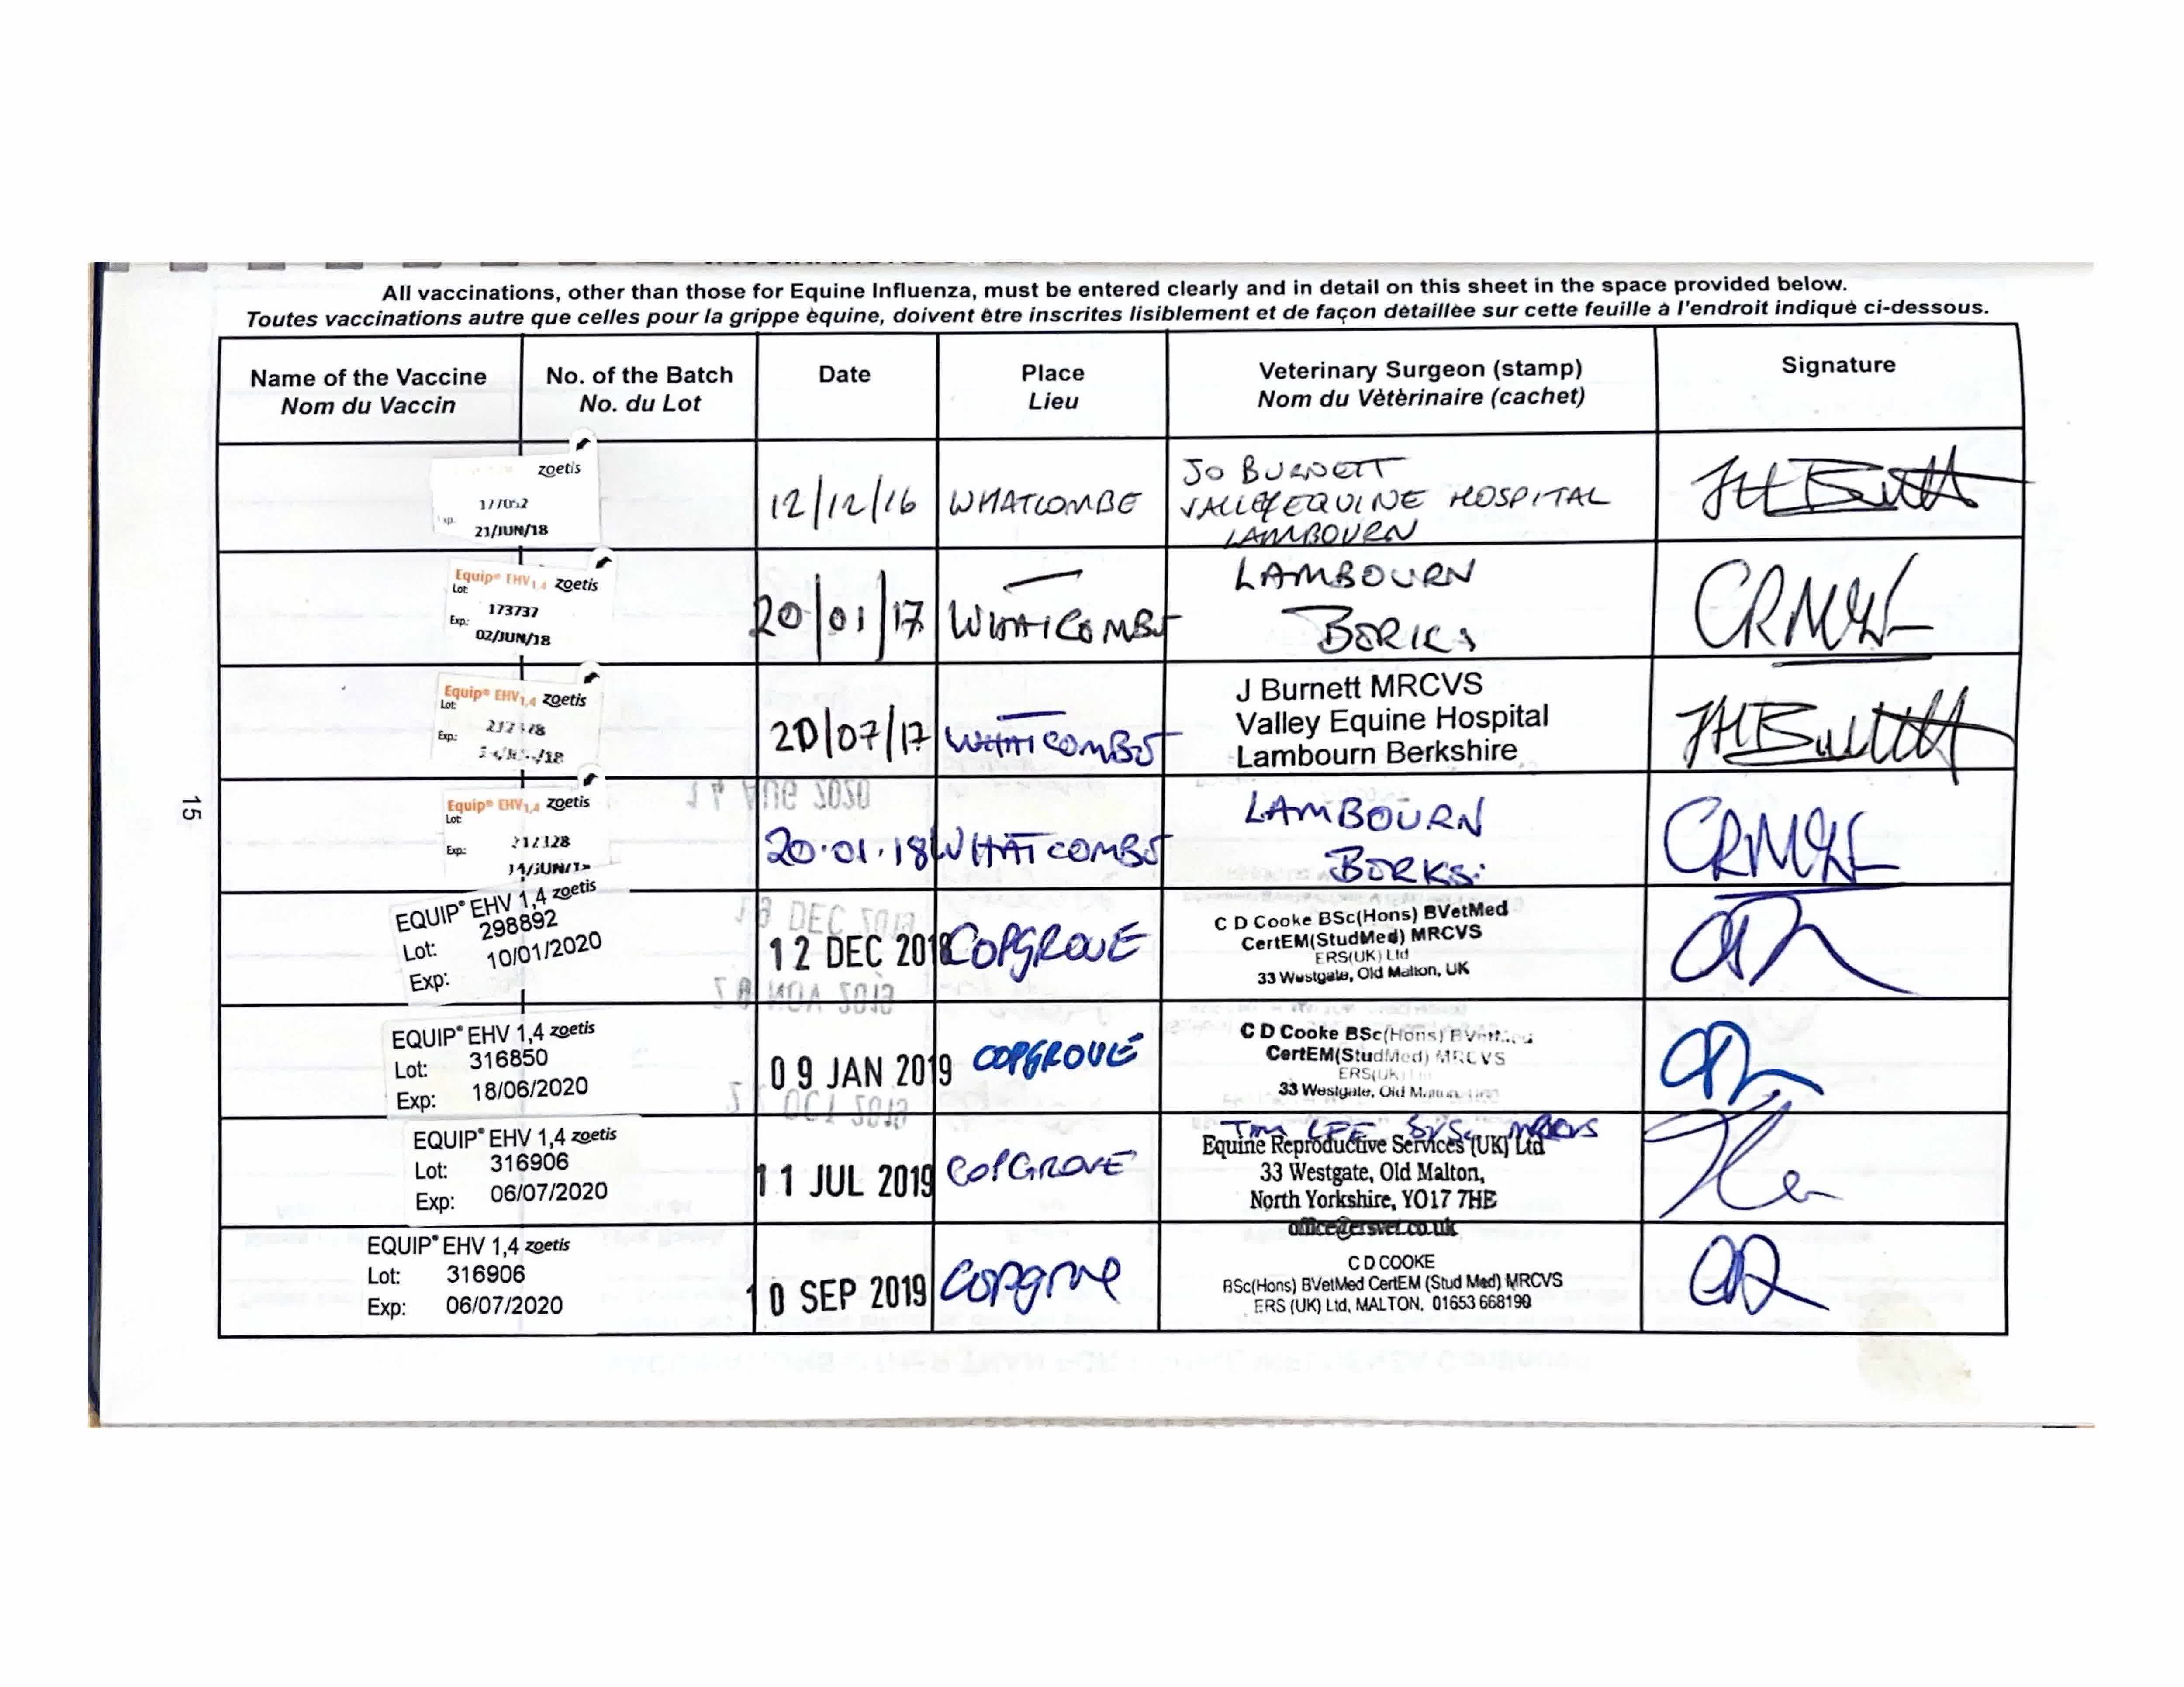 All vaccinations, other than those for Equine Influenza, must be entered clearly and in detail on this sheet in the space provided below.
Toutes vaccinations autre que celles pour la grippe èquine, doivent être inscrites lisiblement et de façon dètaillèe sur cette feuille à l'endroit indiquè ci-dessous.
Name of the Vaccine
Nom du Vaccin
No. of the Batch
No. du Lot
Date
Place
Lieu
Veterinary Surgeon (stamp)
Nom du Vètèrinaire (cachet)
Signature
zoetis
21/JUN/18
12/12/16
WHATCOMBE
JO BURNETT
VALLEY EQUINE HOSPITAL
LAMBOURN
Equip® EHV1,4 zoetis
Lot:
173737
Exp:
02/JUN/18
20/01/17
WHATCOMBE
LAMBOURN
BERKS
Equip® EHV1,4 zoetis
Lot:
Exp:
20/07/17
WHATCOMBE
J Burnett MRCVS
Valley Equine Hospital
Lambourn Berkshire
Equip® EHV1,4 zoetis
Lot:
Exp:
20.01.18
WHATCOMBE
LAMBOURN
BERKS.
EQUIP® EHV 1,4 zoetis
Lot: 298892
Exp: 10/01/2020
12 DEC 2018
COPGROVE
C D Cooke BSc(Hons) BVetMed
CertEM(StudMed) MRCVS
ERS(UK) Ltd
33 Westgate, Old Malton, UK
EQUIP® EHV 1,4 zoetis
Lot: 316850
Exp: 18/06/2020
09 JAN 2019
COPGROVE
C D Cooke BSc(Hons) BVetMed
CertEM(StudMed) MRCVS
ERS(UK)
33 Westgate, Old
EQUIP® EHV 1,4 zoetis
Lot: 316906
Exp: 06/07/2020
11 JUL 2019
COPGROVE
Tim LEE BVSc MRCVS
Equine Reproductive Services (UK) Ltd
33 Westgate, Old Malton,
North Yorkshire, YO17 7HE
office@ersvet.co.uk
EQUIP® EHV 1,4 zoetis
Lot: 316906
Exp: 06/07/2020
10 SEP 2019
Copgrove
C D COOKE
BSc(Hons) BVetMed CertEM (Stud Med) MRCVS
ERS (UK) Ltd, MALTON, 01653 668190
15